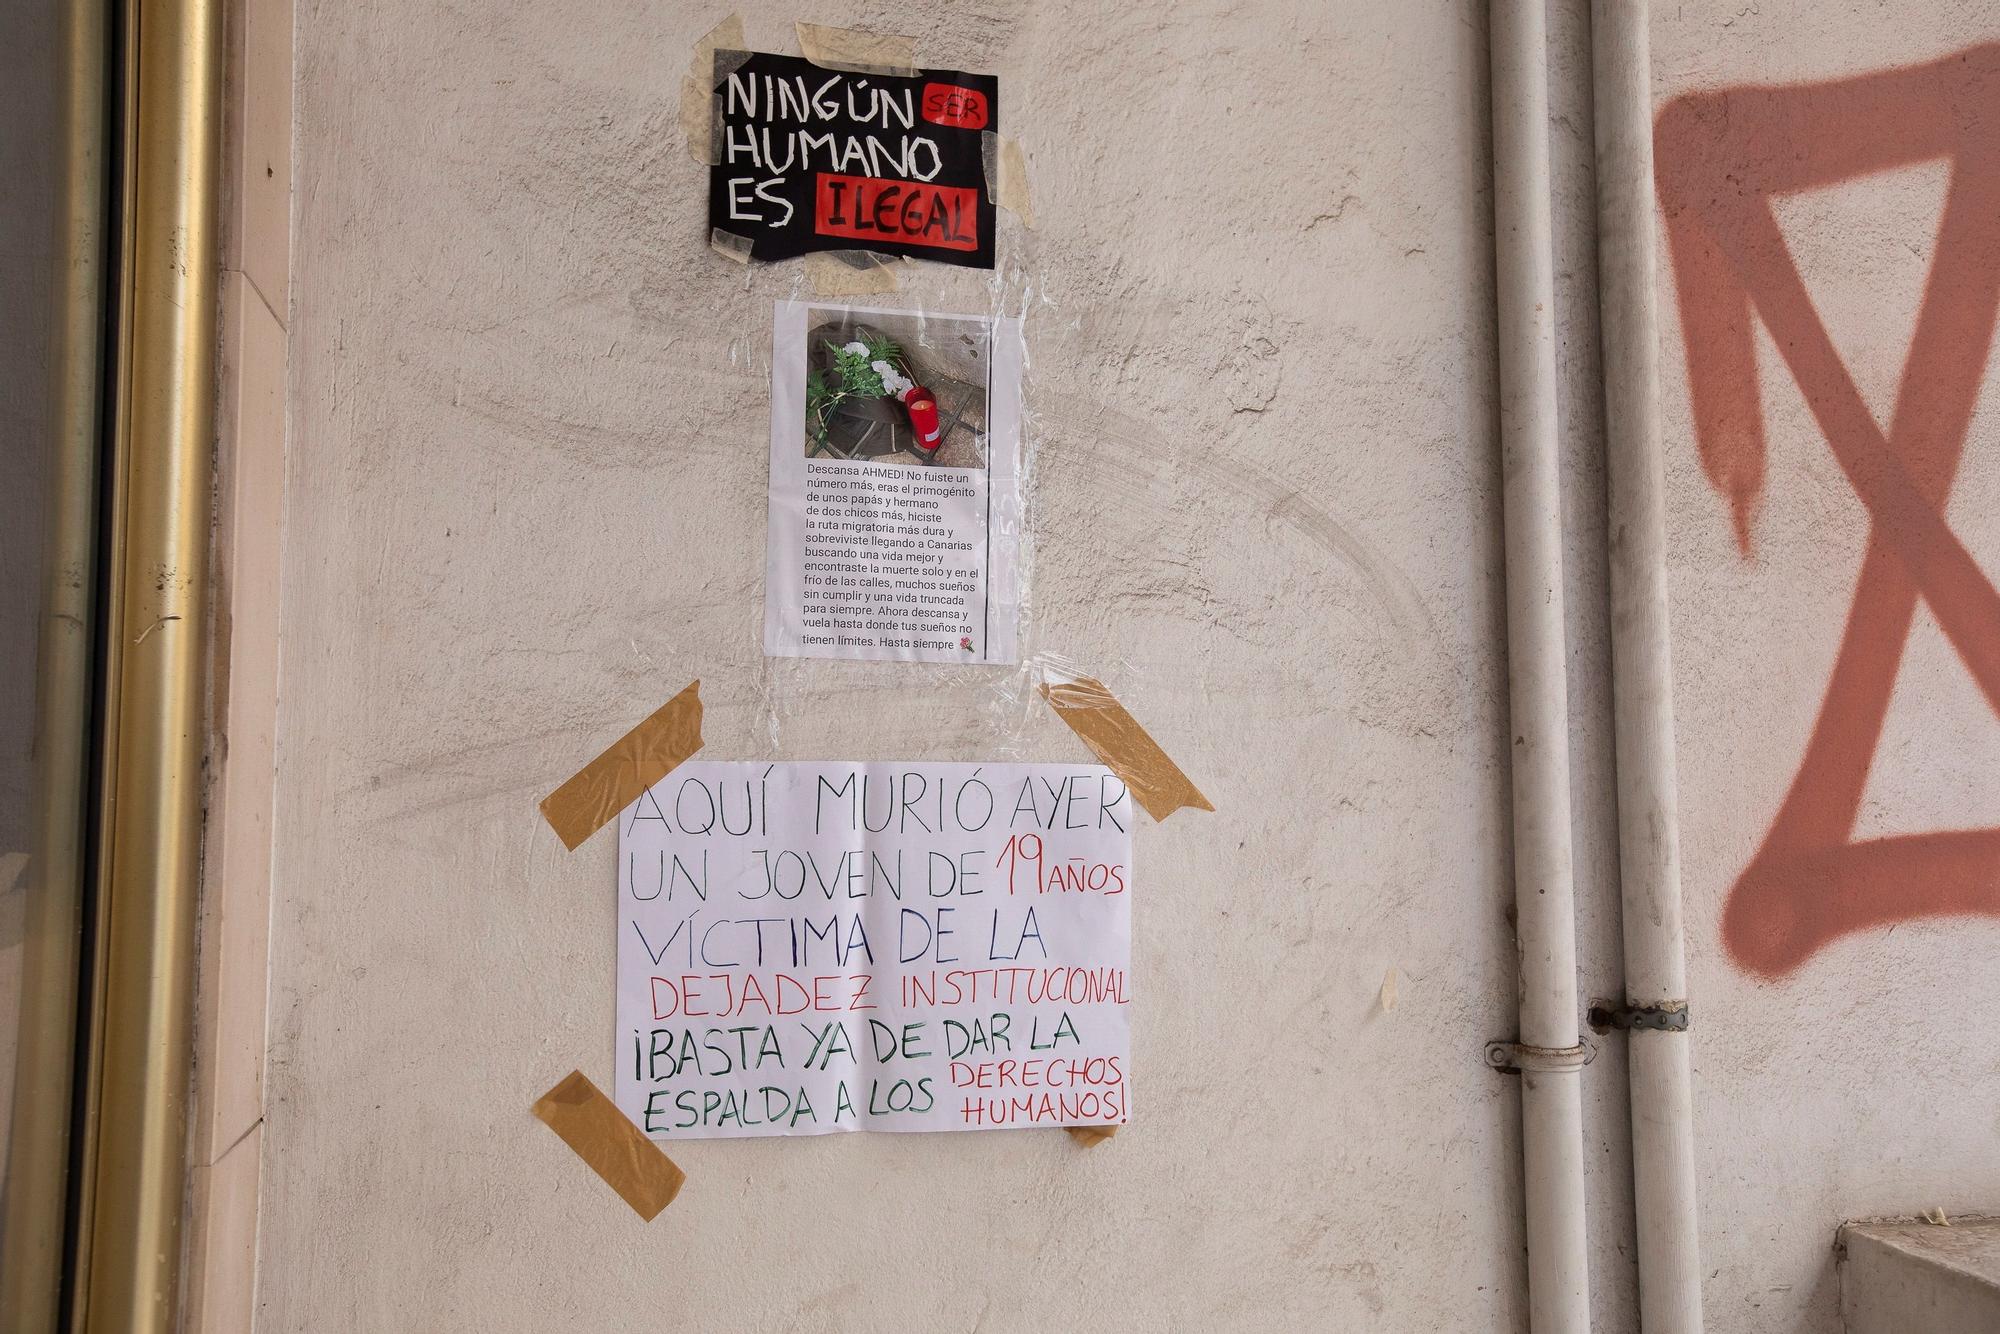 NINGÚN SER
HUMANO
ES ILEGAL
Descansa AHMED! No fuiste un
número más, eras el primogénito
de unos papás y hermano
de dos chicos más, hiciste
la ruta migratoria más dura y
sobreviviste llegando a Canarias
buscando una vida mejor y
encontraste la muerte solo y en el
frío de las calles, muchos sueños
sin cumplir y una vida truncada
para siempre. Ahora descansa y
vuela hasta donde tus sueños no
tienen límites. Hasta siempre 🌹
AQUÍ MURIÓ AYER
UN JOVEN DE 19 AÑOS
VÍCTIMA DE LA
DEJADEZ INSTITUCIONAL
¡BASTA YA DE DAR LA
ESPALDA A LOS DERECHOS
HUMANOS!